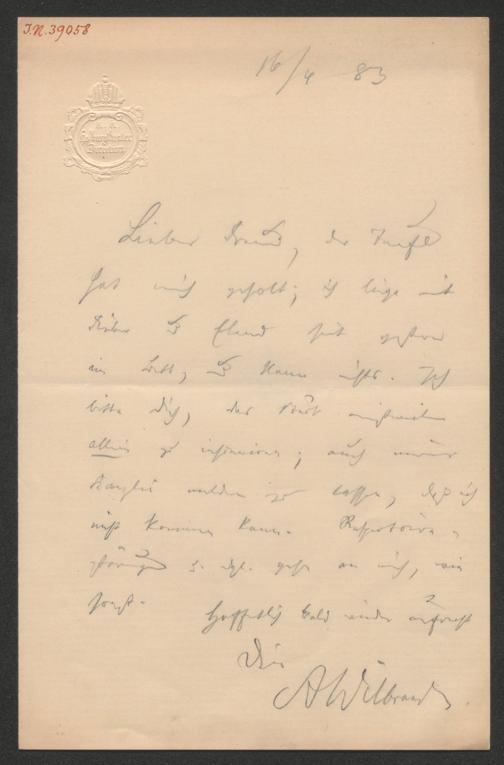 J.N. 39058
16/4 83
K. K.
Hofburgtheater
Direction
Lieber Freund, der Teufel
hat mich geholt; ich liege mit
Fieber u Elend seit gestern
im Bett, u kann nichts. Ich
bitte Dich, das Stück einstweilen
allein zu inscenieren; auch meiner
Kanzlei melden zu lassen, daß ich
nicht kommen kann. Repertoire-
störungen u. dgl. gehn an mich, wie
sonst. Hoffentlich bald wieder aufrecht
Dein
AWilbrandt